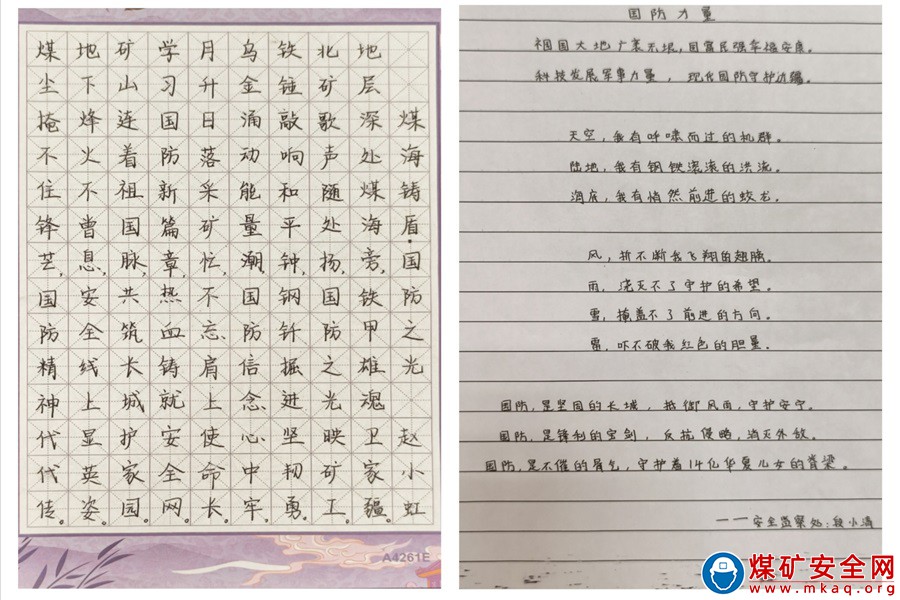 煤海铸盾·国防之光 赵小虹
地层深处煤海旁，铁甲雄魂卫家疆。
北矿歌声随处扬，国防之光映矿工。
铁锤敲响和平钟，钢钎掘进坚韧勇。
乌金涌动能量潮，国防信念心中牢。
月升日落采矿忙，不忘肩上使命长。
学习国防新篇章，热血铸就安全网。
矿山连着祖国脉，共筑长城护家园。
地下烽火不曾息，安全线上显英姿。
煤尘掩不住锋芒，国防精神代代传。
A4261E
国防力量
祖国大地广袤无垠，国富民强幸福安康。
科技发展军事力量，现代国防守护边疆。
天空，我有呼啸而过的机群。
陆地，我有钢铁滚滚的洪流。
海底，我有悄然前进的蛟龙。
风，折不断我飞翔的翅膀。
雨，浇灭不了守护的希望。
雪，掩盖不了前进的方向。
雷，吓不破我红色的胆量。
国防，是坚固的长城，抵御风雨，守护安宁。
国防，是锋利的宝剑，反抗侵略，消灭外敌。
国防，是不催的，守护着14亿华夏儿女的脊梁。
——安全监察处：段小
煤矿安全网
www.mkaq.org